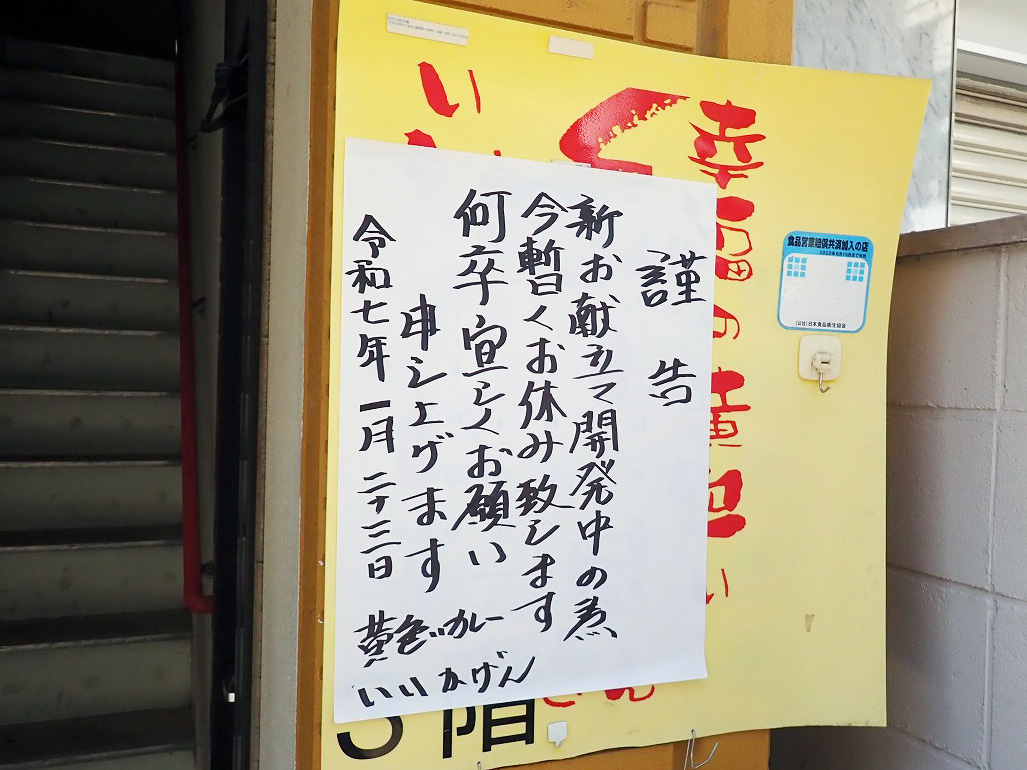 謹告
新お献立て開発中の為
今暫くお休み致します
何卒宜しくお願い
申し上げます
令和七年一月二十三日
黄色いカレー
いいかげん
幸福の黄色い
い
食品営業賠償共済加入の店
(公社)日本食品衛生協会
階